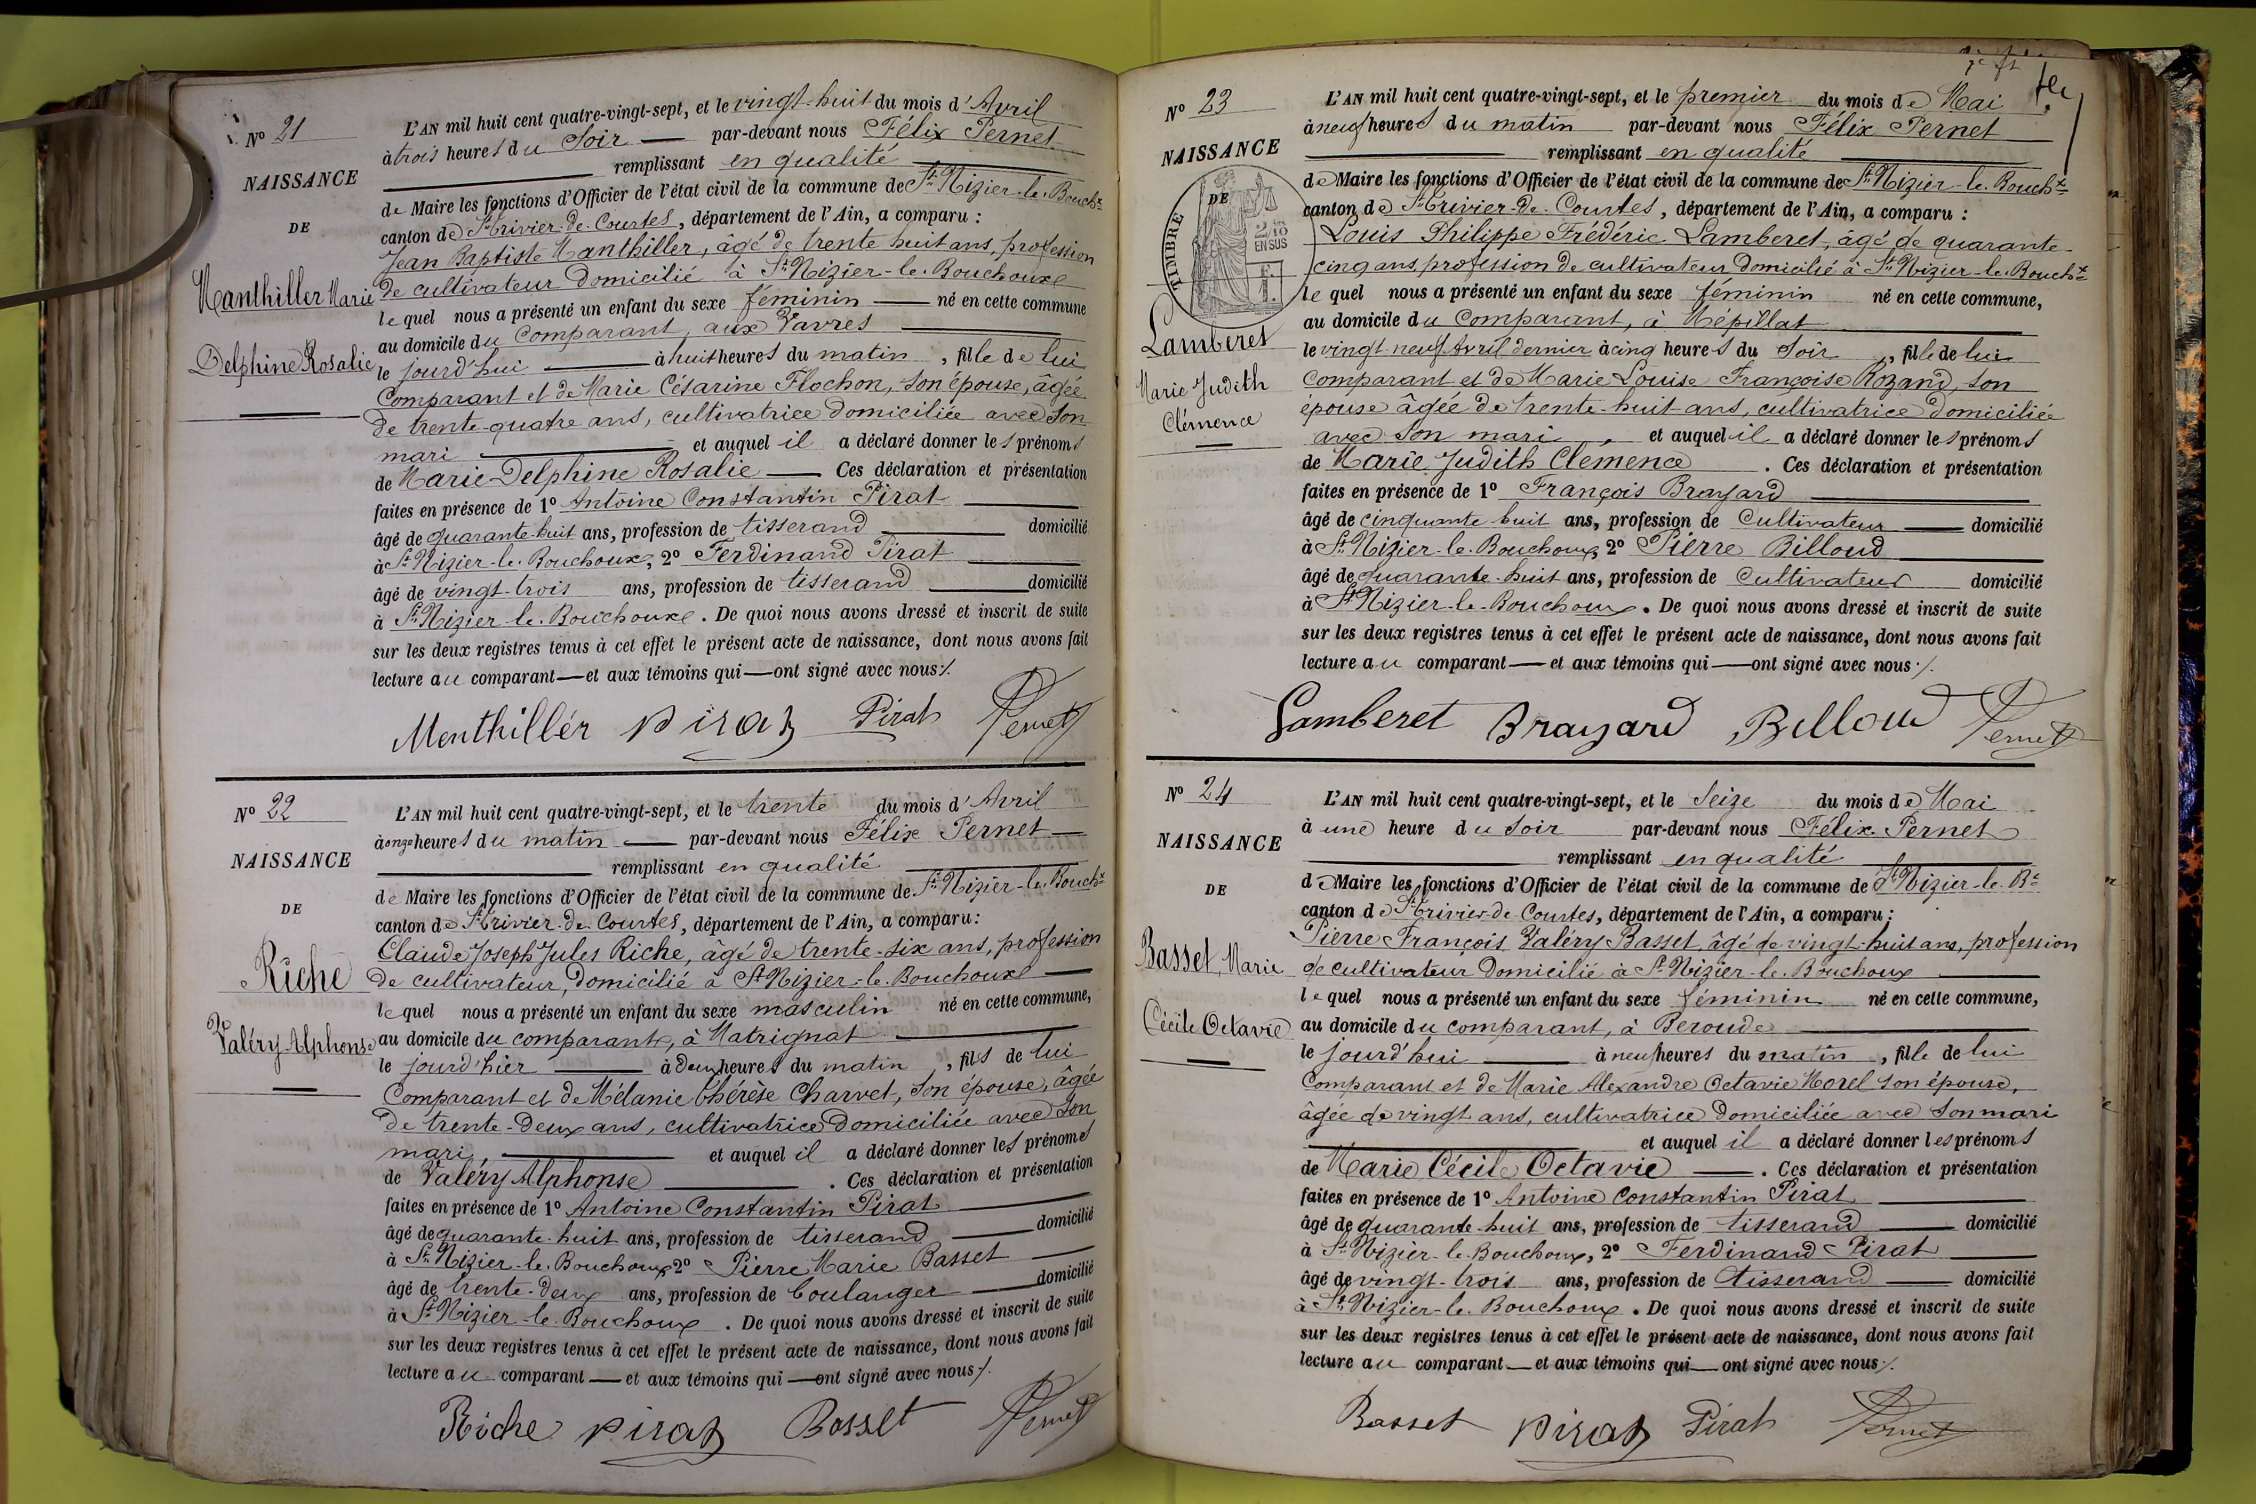 Nº 21
NAISSANCE
DE
Manthiller Marie
Delphine Rosalie
L'AN mil huit cent quatre-vingt-sept, et le vingt-huit du mois d'Avril
à trois heures du Soir par-devant nous Félix Pernet
remplissant en qualité
de Maire les fonctions d'Officier de l'état civil de la commune de St Nizier-le-Bouchx
canton de St Trivier-de-Courtes, département de l'Ain, a comparu :
Jean Baptiste Manthiller, âgé de trente huit ans, profession
de cultivateur domicilié à St Nizier-le-Bouchoux
lequel nous a présenté un enfant du sexe féminin né en cette commune
au domicile du Comparant, aux Vavres
le jourd'hui à huit heures du matin, fille de lui
Comparant et de Marie Césarine Flochon, son épouse, âgée
de trente-quatre ans, cultivatrice domiciliée avec son
mari et auquel il a déclaré donner les prénoms
de Marie Delphine Rosalie Ces déclaration et présentation
faites en présence de 1º Antoine Constantin Pirat
âgé de quarante-huit ans, profession de tisserand domicilié
à St Nizier-le-Bouchoux, 2º Ferdinand Pirat
âgé de vingt-trois ans, profession de tisserand domicilié
à St Nizier-le-Bouchoux. De quoi nous avons dressé et inscrit de suite
sur les deux registres tenus à cet effet le présent acte de naissance, dont nous avons fait
lecture au comparant et aux témoins qui ont signé avec nous ./.
Menthillér Pirat Pirat Pernet
Nº 22
NAISSANCE
DE
Riche
Valéry Alphonse
L'AN mil huit cent quatre-vingt-sept, et le trente du mois d'Avril
à onze heures du matin par-devant nous Félix Pernet
remplissant en qualité
de Maire les fonctions d'Officier de l'état civil de la commune de St Nizier-le-Bouchx
canton de St Trivier-de-Courtes, département de l'Ain, a comparu :
Claude Joseph Jules Riche, âgé de trente-six ans, profession
de cultivateur, domicilié à St Nizier-le-Bouchoux
lequel nous a présenté un enfant du sexe masculin né en cette commune,
au domicile du comparant, à Matrignat
le jourd'hier à deux heures du matin, fils de lui
Comparant et de Mélanie Thérèse Charvet, son épouse, âgée
de trente-deux ans, cultivatrice domiciliée avec son
mari, et auquel il a déclaré donner les prénoms
de Valéry Alphonse. Ces déclaration et présentation
faites en présence de 1º Antoine Constantin Pirat
âgé de quarante-huit ans, profession de tisserand domicilié
à St Nizier-le-Bouchoux 2º Pierre Marie Basset
âgé de trente-deux ans, profession de boulanger domicilié
à St Nizier-le-Bouchoux. De quoi nous avons dressé et inscrit de suite
sur les deux registres tenus à cet effet le présent acte de naissance, dont nous avons fait
lecture au comparant et aux témoins qui ont signé avec nous ./.
Riche Pirat Basset Pernet
Nº 23
NAISSANCE
DE
TIMBRE
2 10
EN SUS
Lamberet
Marie Judith
Clémence
L'AN mil huit cent quatre-vingt-sept, et le premier du mois de Mai
à neuf heures du matin par-devant nous Félix Pernet
remplissant en qualité
de Maire les fonctions d'Officier de l'état civil de la commune de St Nizier-le-Bouchx
canton de St Trivier-de-Courtes, département de l'Ain, a comparu :
Louis Philippe Frédéric Lamberet, âgé de quarante-
cinq ans profession de cultivateur domicilié à St Nizier-le-Bouchx
lequel nous a présenté un enfant du sexe féminin né en cette commune,
au domicile du Comparant, à Mépillat
le vingt neuf Avril dernier à cinq heures du Soir, fille de lui
Comparant et de Marie Louise Françoise Rozand, son
épouse âgée de trente-huit ans, cultivatrice domiciliée
avec son mari, et auquel il a déclaré donner les prénoms
de Marie Judith Clemence. Ces déclaration et présentation
faites en présence de 1º François Brayard
âgé de cinquante huit ans, profession de Cultivateur domicilié
à St Nizier-le-Bouchoux, 2º Pierre Billoud
âgé de quarante-huit ans, profession de Cultivateur domicilié
à St Nizier-le-Bouchoux. De quoi nous avons dressé et inscrit de suite
sur les deux registres tenus à cet effet le présent acte de naissance, dont nous avons fait
lecture au comparant et aux témoins qui ont signé avec nous ./.
Lamberet Brayard Billoud Pernet
Nº 24
NAISSANCE
DE
Basset Marie
Cécile Octavie
L'AN mil huit cent quatre-vingt-sept, et le Seize du mois de Mai
à une heure du soir par-devant nous Félix Pernet
remplissant en qualité
de Maire les fonctions d'Officier de l'état civil de la commune de St Nizier-le-Bx
canton de St Trivier-de-Courtes, département de l'Ain, a comparu :
Pierre François Valéry Basset, âgé de vingt-huit ans, profession
de cultivateur domicilié à St Nizier-le-Bouchoux
lequel nous a présenté un enfant du sexe féminin né en cette commune,
au domicile du comparant, à Beroude
le jourd'hui à neuf heures du matin, fille de lui
Comparant et de Marie Alexandre Octavie Morel son épouse,
âgée de vingt ans, cultivatrice domiciliée avec son mari
et auquel il a déclaré donner les prénoms
de Marie Cécile Octavie. Ces déclaration et présentation
faites en présence de 1º Antoine Constantin Pirat
âgé de quarante-huit ans, profession de tisserand domicilié
à St Nizier-le-Bouchoux, 2º Ferdinand Pirat
âgé de vingt-trois ans, profession de tisserand domicilié
à St Nizier-le-Bouchoux. De quoi nous avons dressé et inscrit de suite
sur les deux registres tenus à cet effet le présent acte de naissance, dont nous avons fait
lecture au comparant et aux témoins qui ont signé avec nous ./.
Basset Pirat Pirat Pernet